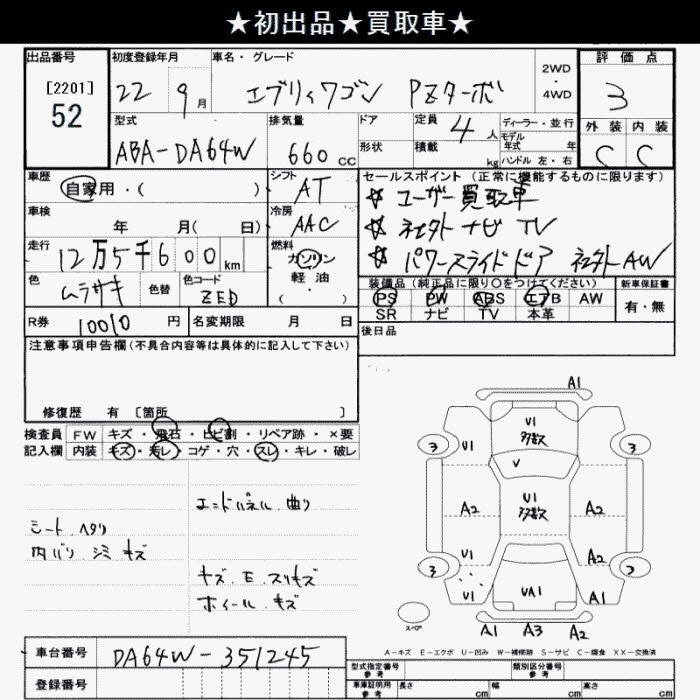 ★初出品★買取車★
出品番号 初度登録年月 車名・グレード 評価点
[2201] 22 9月 エブリィワゴン PZターボ 2WD・4WD 3
52
型式 排気量 ドア 定員 4人 ディーラー・並行 外装 内装
ABA-DA64W 660cc 形状 積載 kg モデル年式 年 C C
ハンドル 左・右
車歴 シフト セールスポイント (正常に機能するものに限ります)
自家用・( ) AT ☆ ユーザー買取車
車検 年 月( 日) 冷房 AAC ☆ 社外ナビ TV
走行 12万5千600km 燃料 ガソリン・軽油・( ) ☆ パワースライドドア 社外AW
色 ムラサキ 色替 色コード ZED 装備品 (純正品に限り○をつけてください) 新車保証書
PS PW ABS エアB AW 有・無
SR ナビ TV 本革
R券 10010円 名変期限 月 日 後日品
注意事項申告欄 (不具合内容等は具体的に記入して下さい)
修復歴 有 〔箇所 〕
検査員 FW キズ・飛石・ヒビ割・リペア跡・×要
記入欄 内装 キズ・汚レ・コゲ・穴・スレ・キレ・破レ
エンドパネル 曲り
シート ヘタリ
内バリ シミ キズ
キズ.E.スリキズ
ホイール キズ
A1
U1 多数
3 U1 U1 3
V
A2 U1 多数 A2
U1 A2
3 3
U1 UA1 A2
スペア A1 A3 A2
A-キズ E-エクボ U-凹み W-補修跡 S-サビ C-腐食 XX-交換済
車台番号 DA64W-351245
登録番号
型式指定番号 参考 類別区分番号 参考
車庫証明用 参考 長さ cm 幅 cm 高さ cm